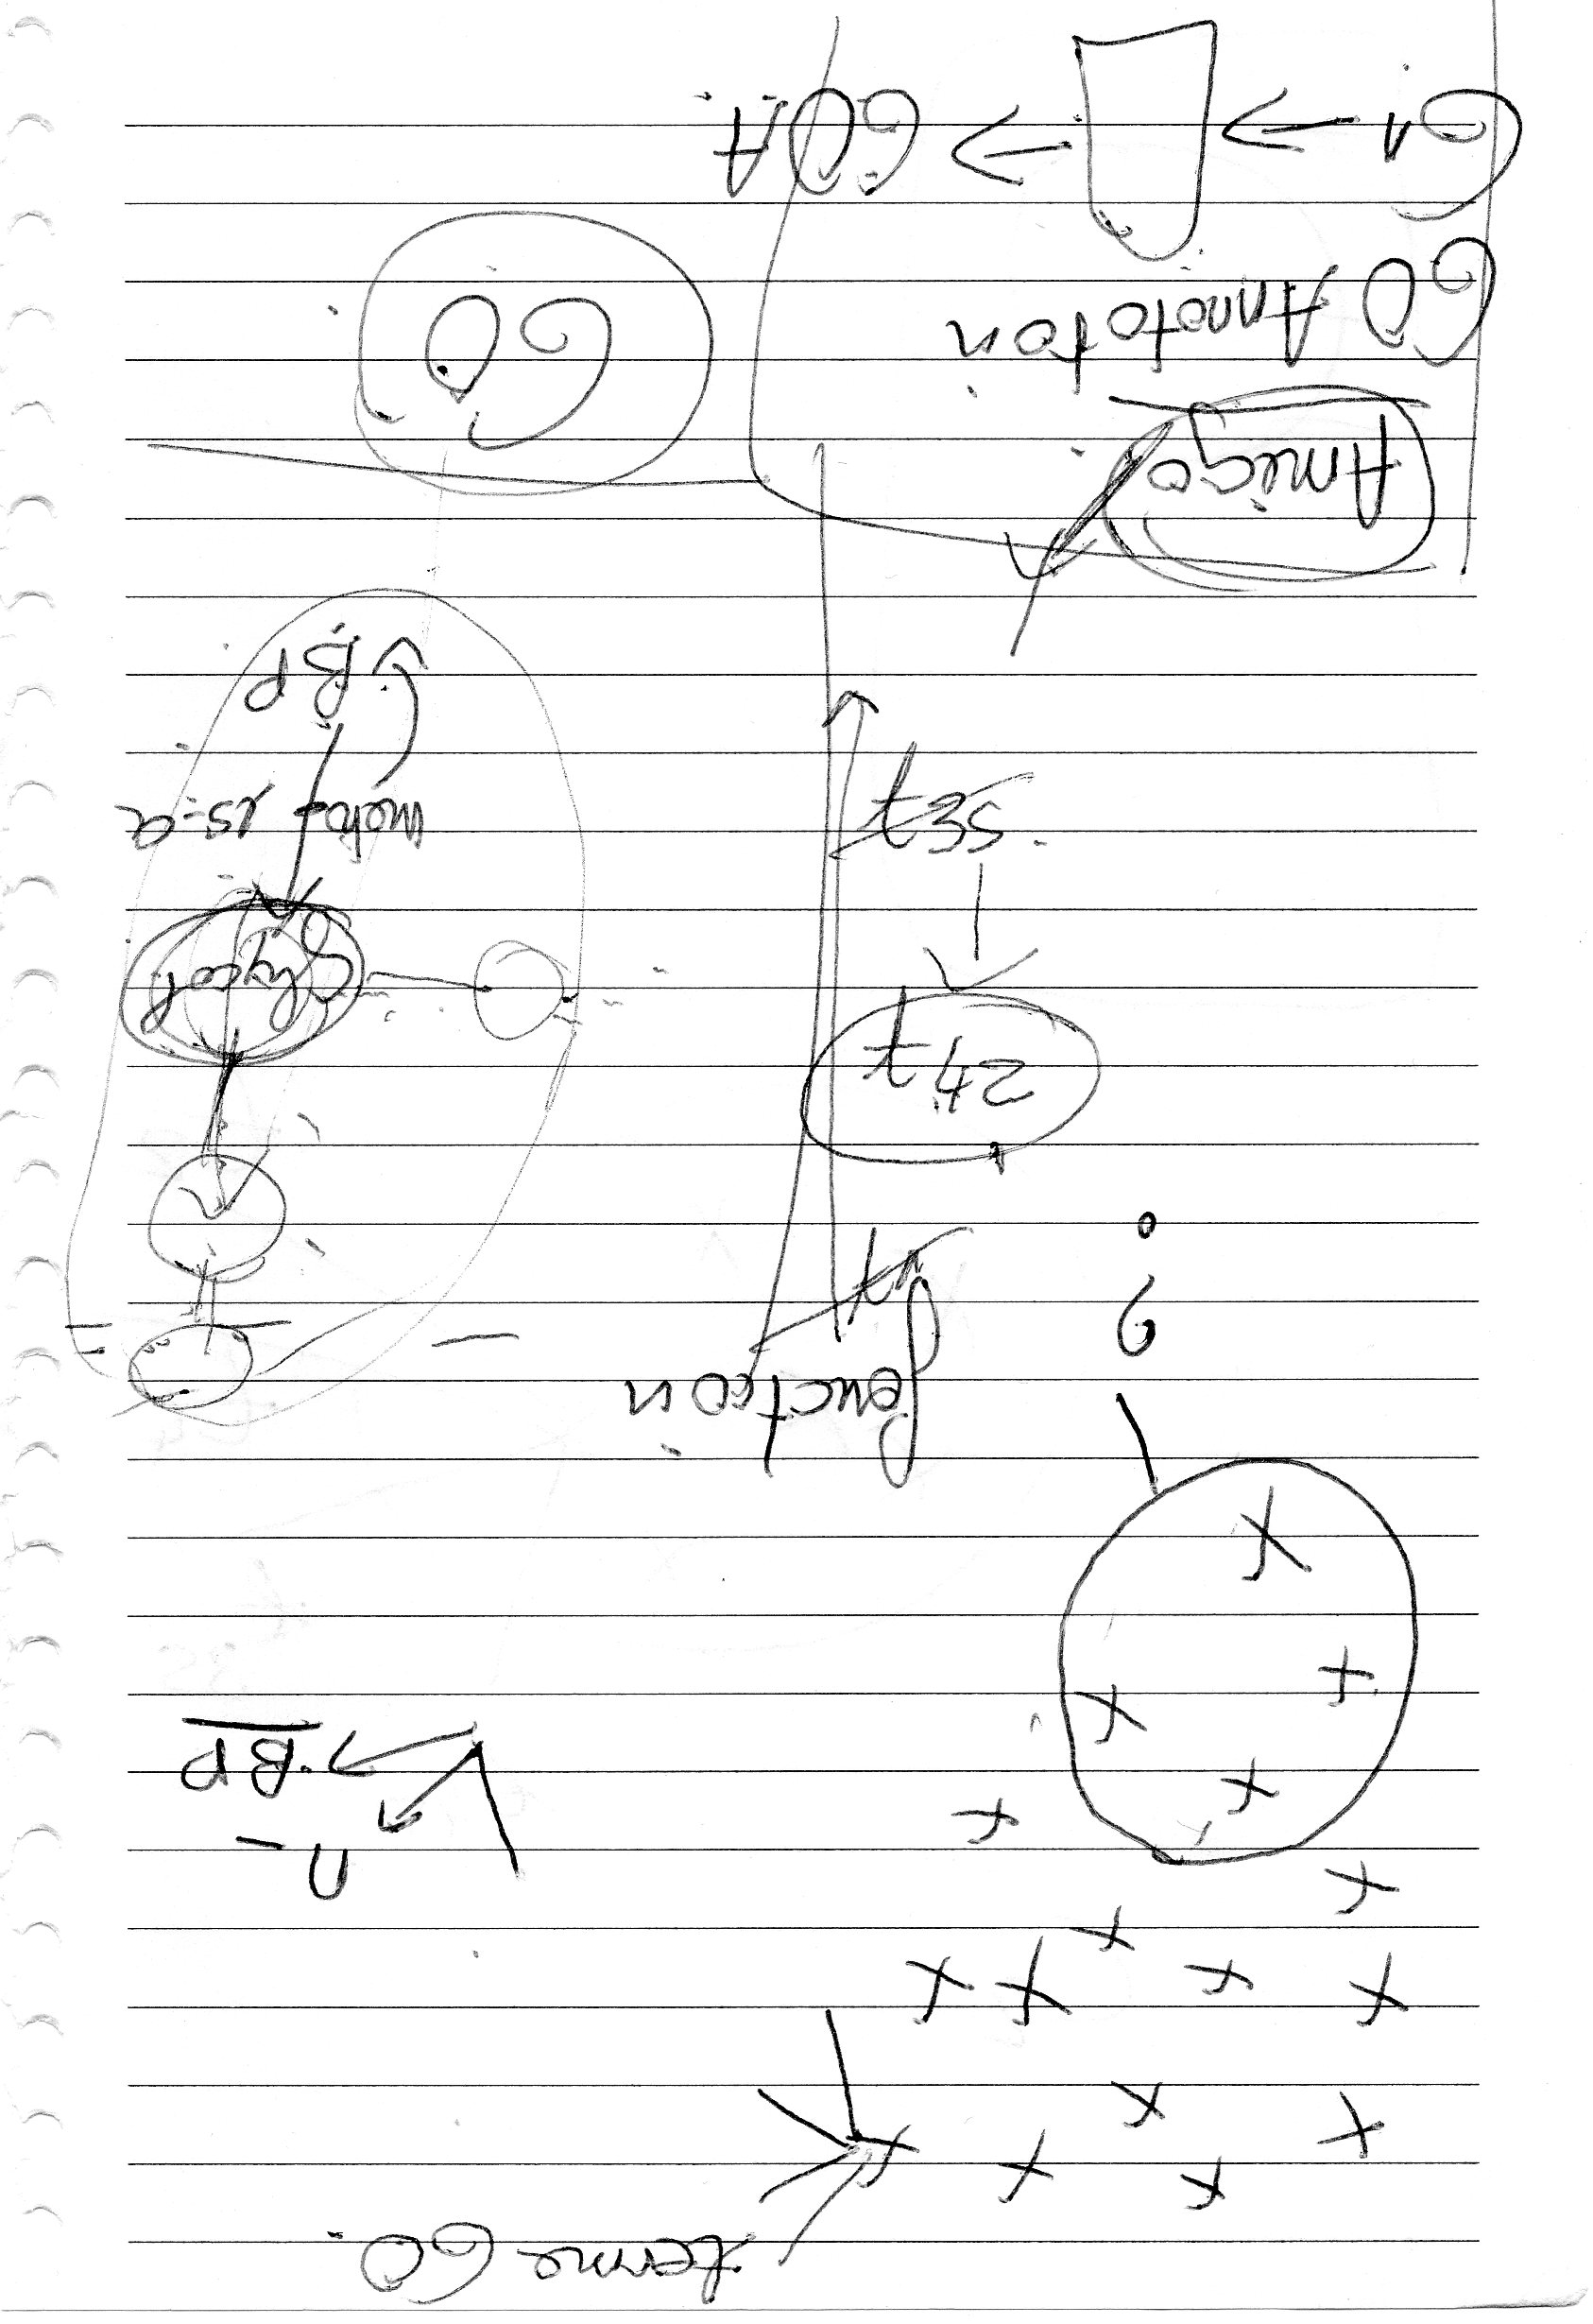 terme GO.
n
BP
fonction
?
glycol.
meta is-a
BP.
Amigo
GO
GO Annotation
G1
GOA.